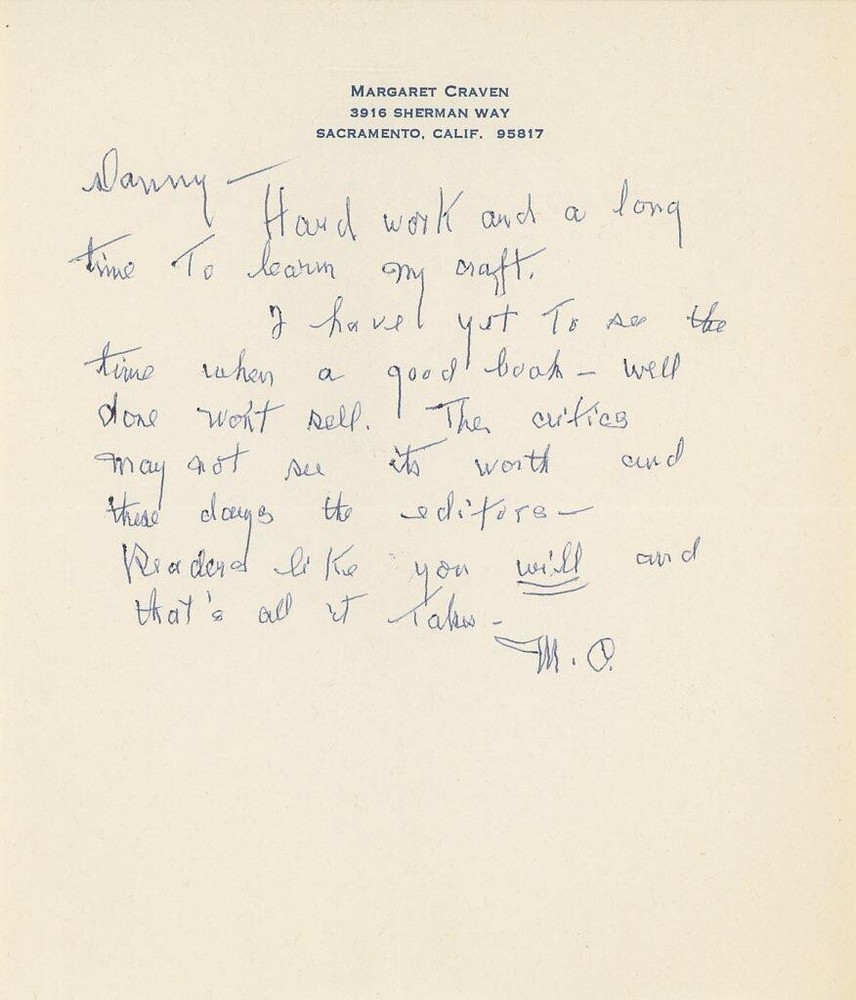 MARGARET CRAVEN
3916 SHERMAN WAY
SACRAMENTO, CALIF. 95817
Danny —
Hard work and a long
time To learn my craft.
I have yet To see the
time when a good book – well
done won't sell. The critics
may not see its worth and
these days the editors —
Readers like you will and
that's all it Takes –
M. C.